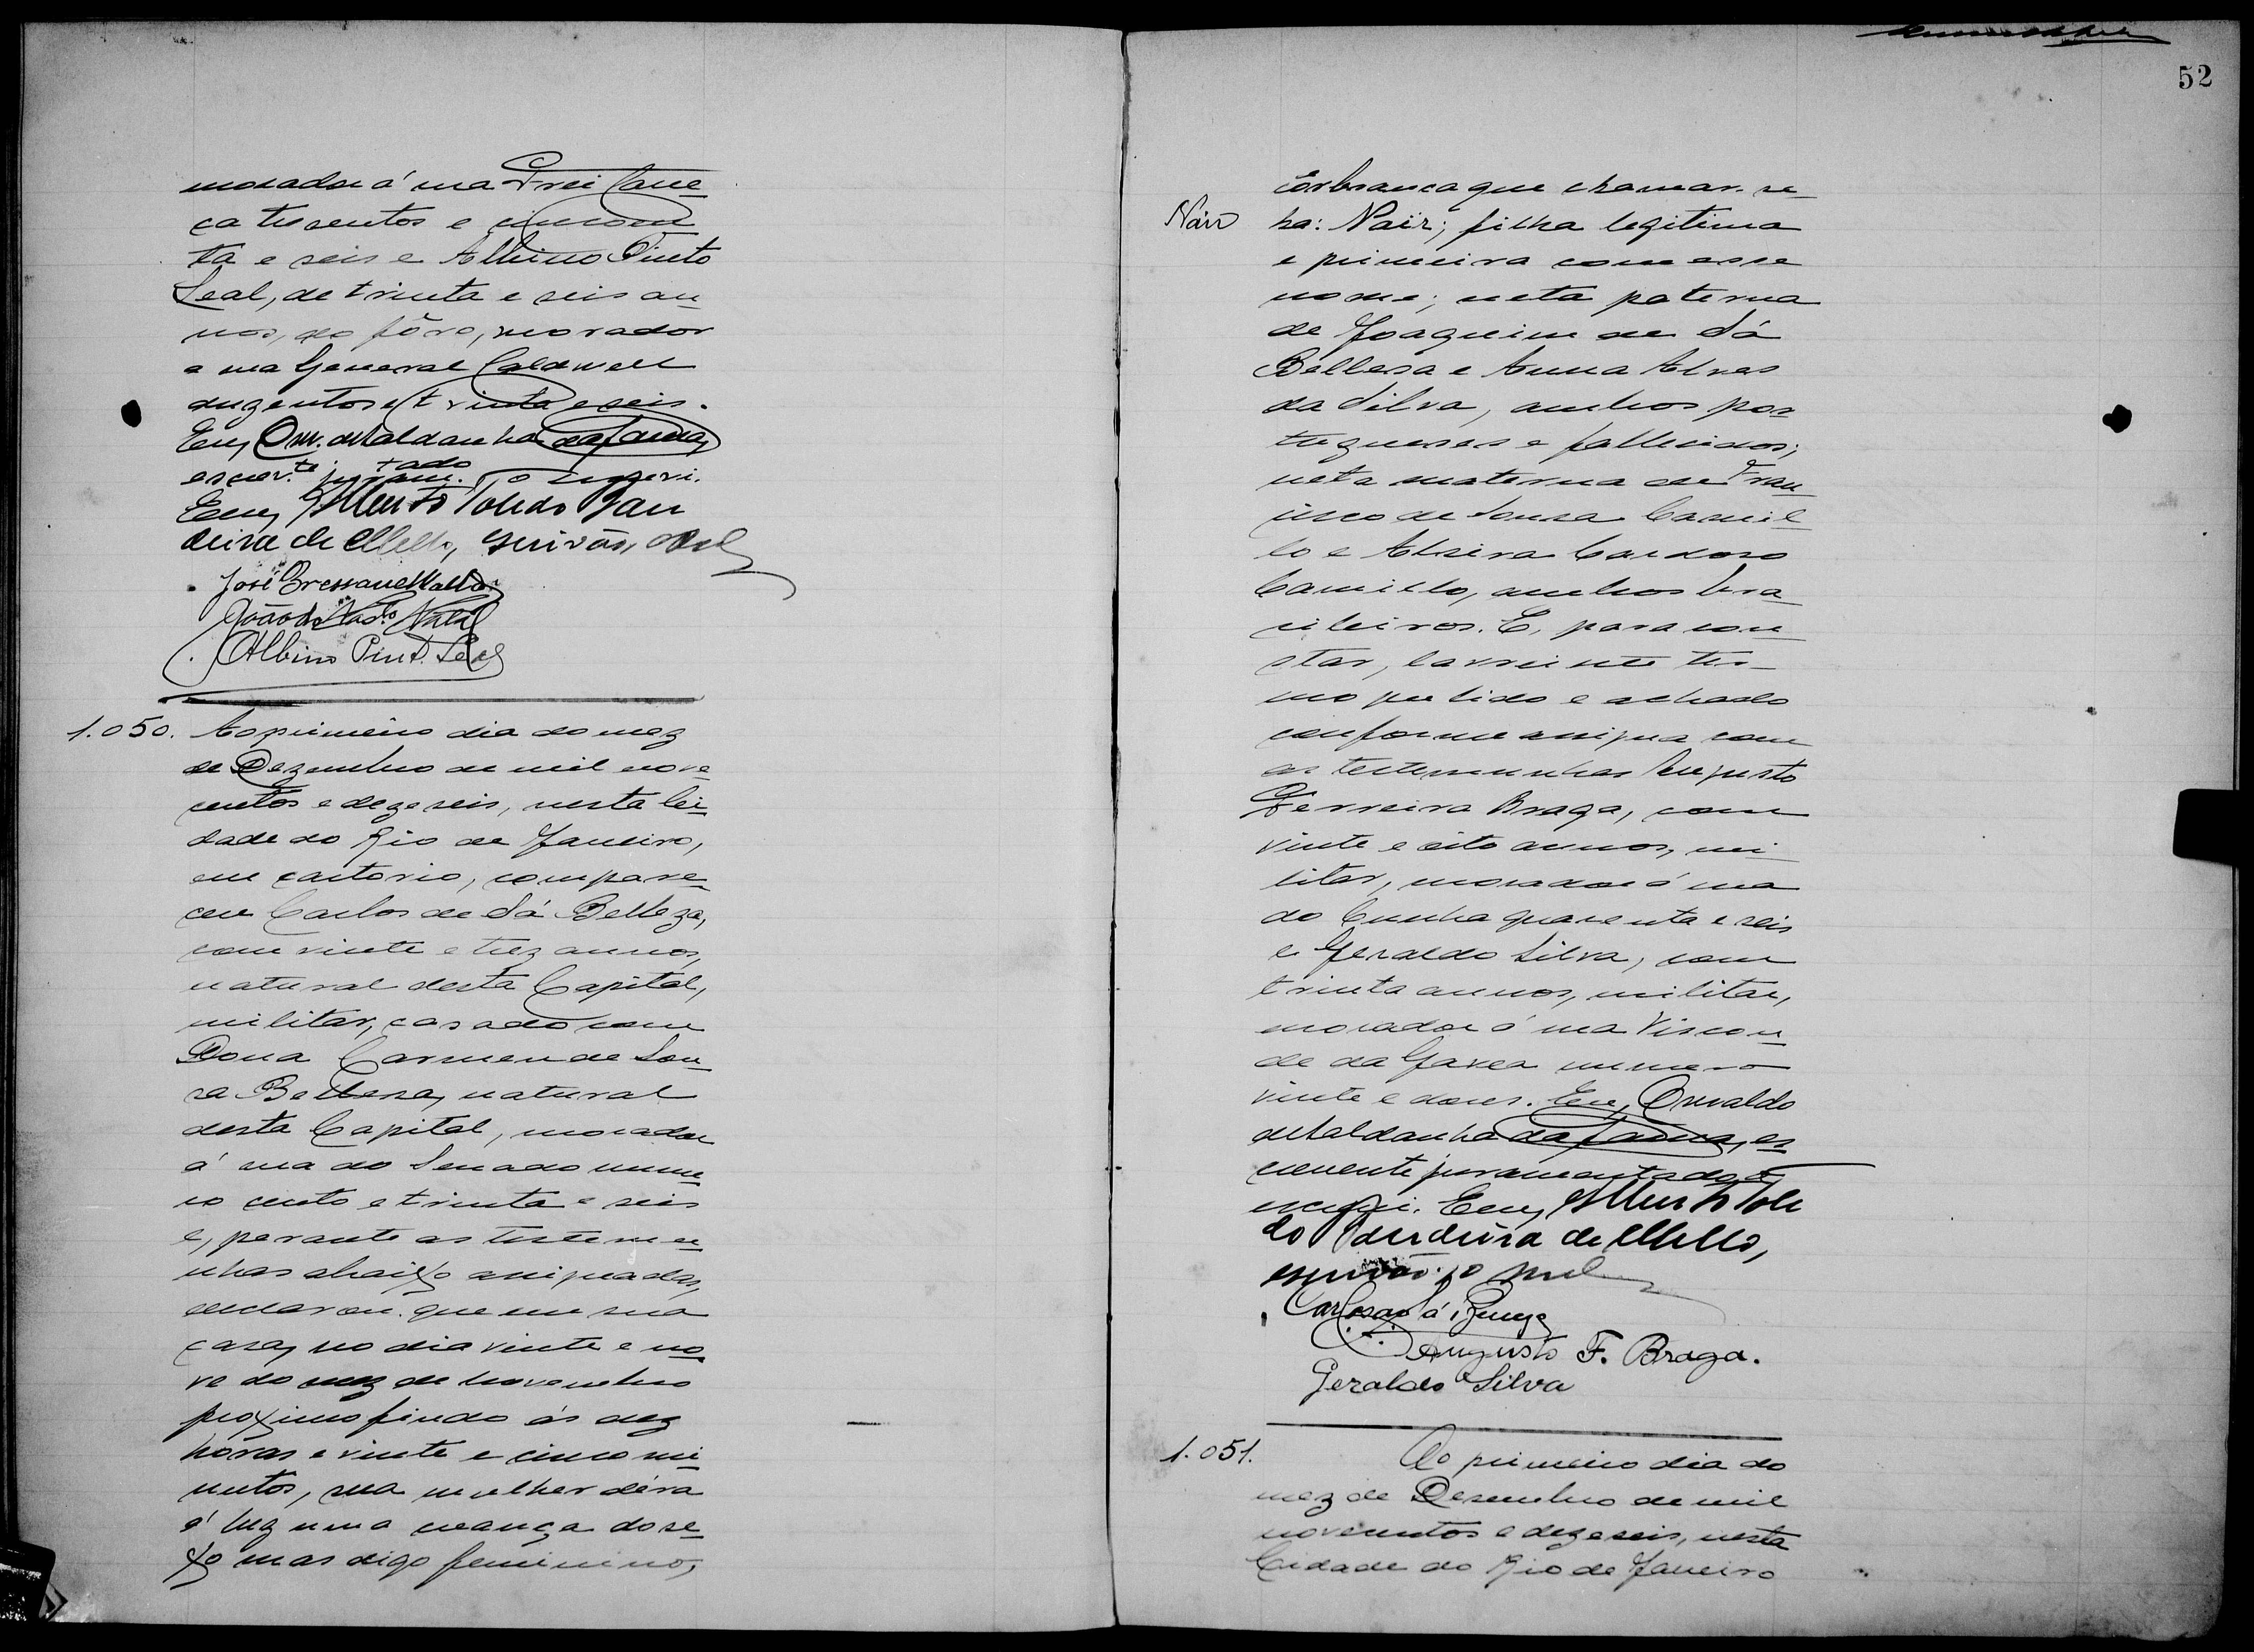 morador á rua Frei Cane
ca tresentos e cincoen
ta e seis e Albino Pinto
Leal, de trinta e seis an
nos, do fôro, morador
a rua General Caldwell
duzentos e trinta e seis.
Eu, Osw. Saldanha da Gama,
escrev.te juram.tado o escrevi.
Eu, Alberto Toledo Ban
deira de Mello, escrivão,
José Bressane
João
Albino Pint. Leal
1.050. Ao primeiro dia do mez
de Dezembro de mil nove
centos e dezeseis, nesta Ci
dade do Rio de Janeiro,
em cartorio, compare
ceu Carlos de Sá Belleza,
com vinte e trez annos,
natural desta Capital,
militar, casado com
Dona Carmen de Sou
sa Bellesa, natural
desta Capital, morador
á rua do Senado nume
ro cento e trinta e seis
e, perante as testemu
nhas abaixo assignadas,
declarou: que em sua
casa, no dia vinte e no
ve do mez de Novembro
proximo findo ás dez
horas e vinte e cinco mi
nutos, sua mulher déra
á luz uma creança do se
xo mas digo feminino,
52
côr branca que chamar-se
Nair
ha: Naïr; filha legitima
e primeira com esse
nome; neta paterna
de Joaquim de Sá
Bellesa e Anna Alves
da Silva, ambos por
tuguezes e fallecidos;
neta materna de Fran
cisco de Sousa Camil
lo e Alzira Cardoso
Camillo, ambos bra
sileiros. E, para con
star, lavrei este ter
mo que lido e achado
conforme assigna com
as testemunhas Augusto
Ferreira Braga, com
vinte e oito annos, mi
litar, morador á rua
do Cunha quarenta e seis
e Geraldo Silva, com
trinta annos, militar,
morador á rua Viscon
de da Gavea numero
vinte e dous. Eu, Oswaldo
Saldanha da Gama, es
crevente juramentado o
escrevi. Eu, Alberto Tole
do Bandeira de Mello,
escrivão, o
Carlos de Sá Belleza
Augusto F. Braga.
Geraldo Silva
1.051. Ao primeiro dia do
mez de Desembro de mil
novecentos e dezeseis, nesta
Cidade do Rio de Janeiro